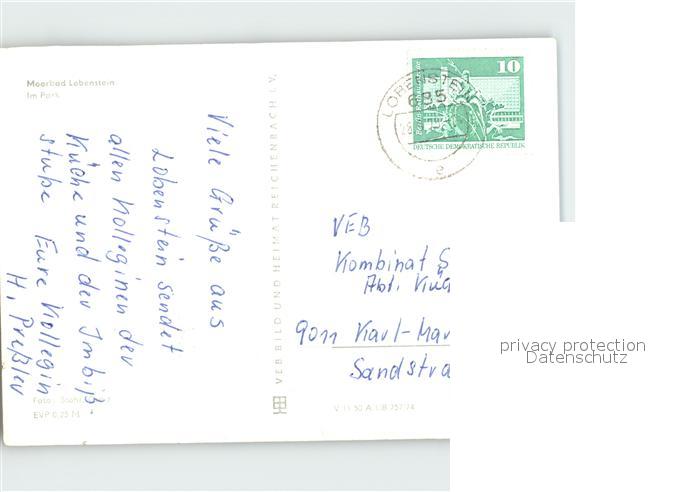 Moorbad Lobenstein
Im Park
Viele Grüße aus
Lobenstein sendet
allen Kolleginen der
Küche und der Imbiß-
stube Eure Kollegin
H. Preßler
EVP 0,25 M
VEB BILD UND HEIMAT REICHENBACH I. V.
V 11 50 A 1/B 757/74
10
DEUTSCHE DEMOKRATISCHE REPUBLIK
LOBENSTEIN
685
e
VEB
Kombinat S
Abt. Küc
9011 Karl-Mar
Sandstra
privacy protection
Datenschutz